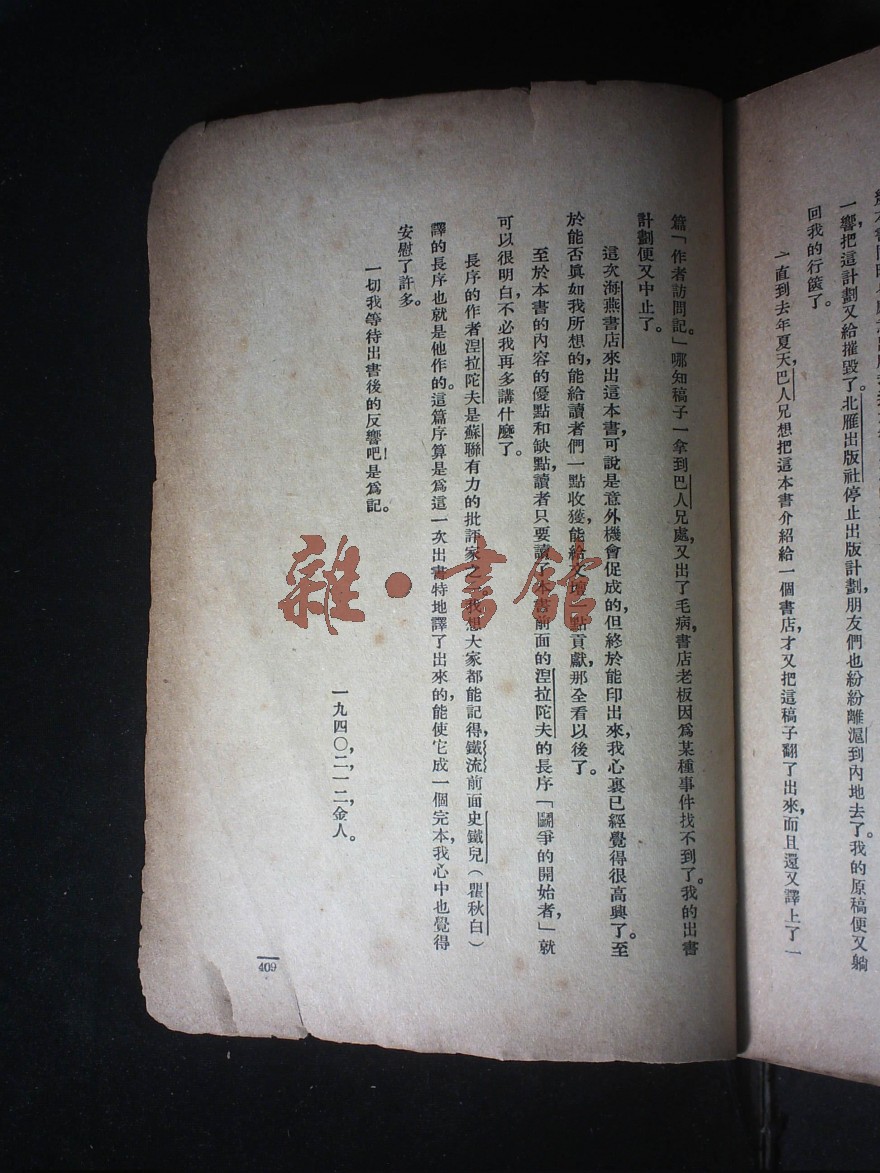 一響,把這計劃又給摧毀了。北雁出版社停止出版計劃,朋友們也紛紛離滬到內地去了。我的原稿便又躺
回我的行篋了。
一直到去年夏天,巴人兄想把這本書介紹給一個書店,才又把這稿子翻了出來,而且還又譯上了一
篇「作者訪問記。」哪知稿子一拿到巴人兄處,又出了毛病,書店老板因爲某種事件找不到了。我的出書
計劃便又中止了。
這次海燕書店來出這本書,可說是意外機會促成的,但終於能印出來,我心裏已經覺得很高興了。至
於能否真如我所想的,能給讀者們一點收獲,能給文壇一點貢獻,那全看以後了。
至於本書的內容的優點和缺點,讀者只要讀了本書前面的涅拉陀夫的長序「鬭爭的開始者,」就
可以很明白,不必我再多講什麼了。
長序的作者涅拉陀夫是蘇聯有力的批評家之一。我想大家都能記得,鐵流前面史鐵兒(瞿秋白)
譯的長序也就是他作的。這篇序算是爲這一次出書特地譯了出來的,能使它成一個完本,我心中也覺得
安慰了許多。
一切我等待出書後的反響吧!是爲記。
一九四〇,二,一二,金人。
409
雜·書館